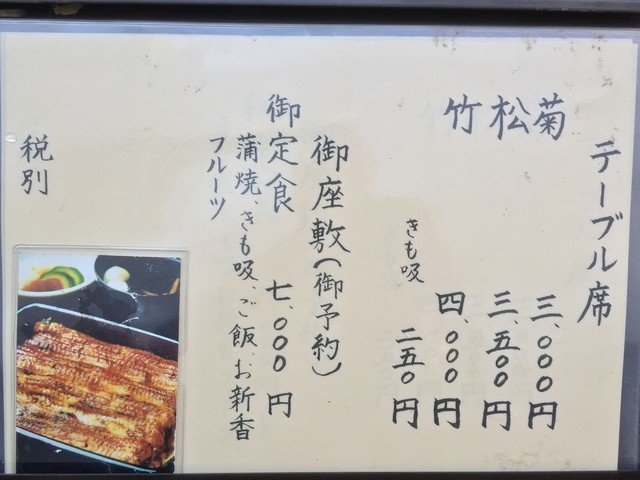 テーブル席
菊 三、〇〇〇円
松 三、五〇〇円
竹 四、〇〇〇円
きも吸 二五〇円
御座敷(御予約)
御定食 七、〇〇〇円
蒲焼、きも吸、ご飯、お新香
フルーツ
税別